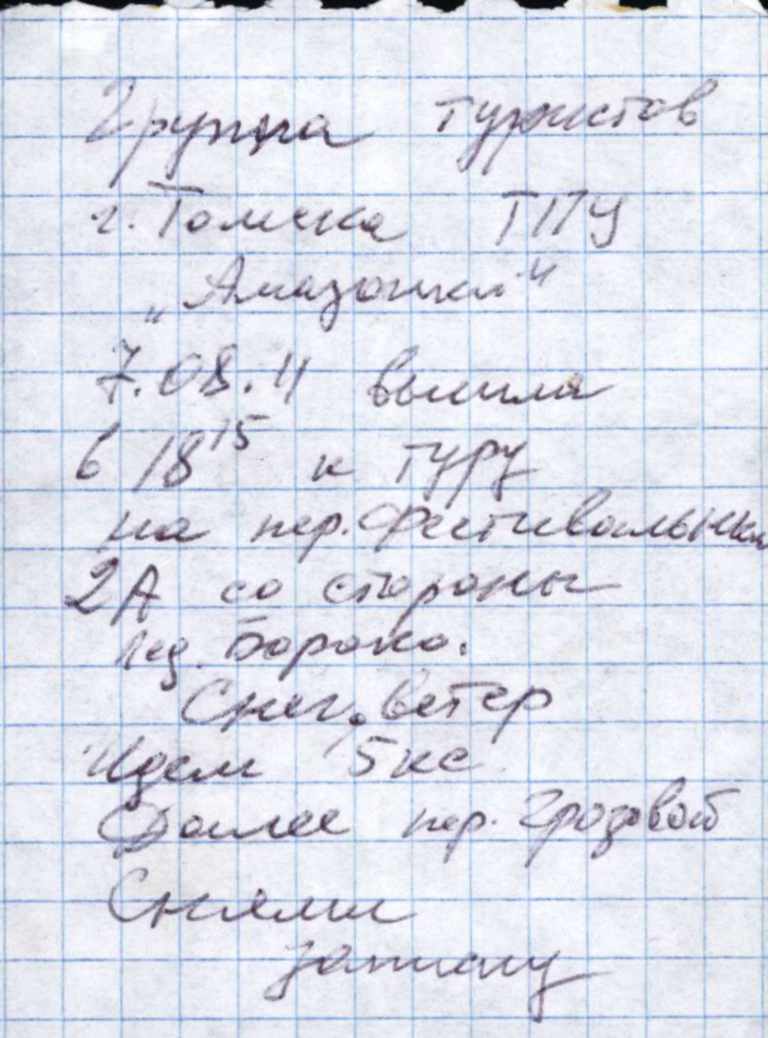 Группа туристов
г. Томска ТПУ
„Амазонки"
7.08.11 вышла
в 18 15 к туру
на пер. Фестивальный
2А со стороны
лед. Бороко.
Снег, ветер
Идем 5 кс
Далее пер. Грозовой
Сняли
записку